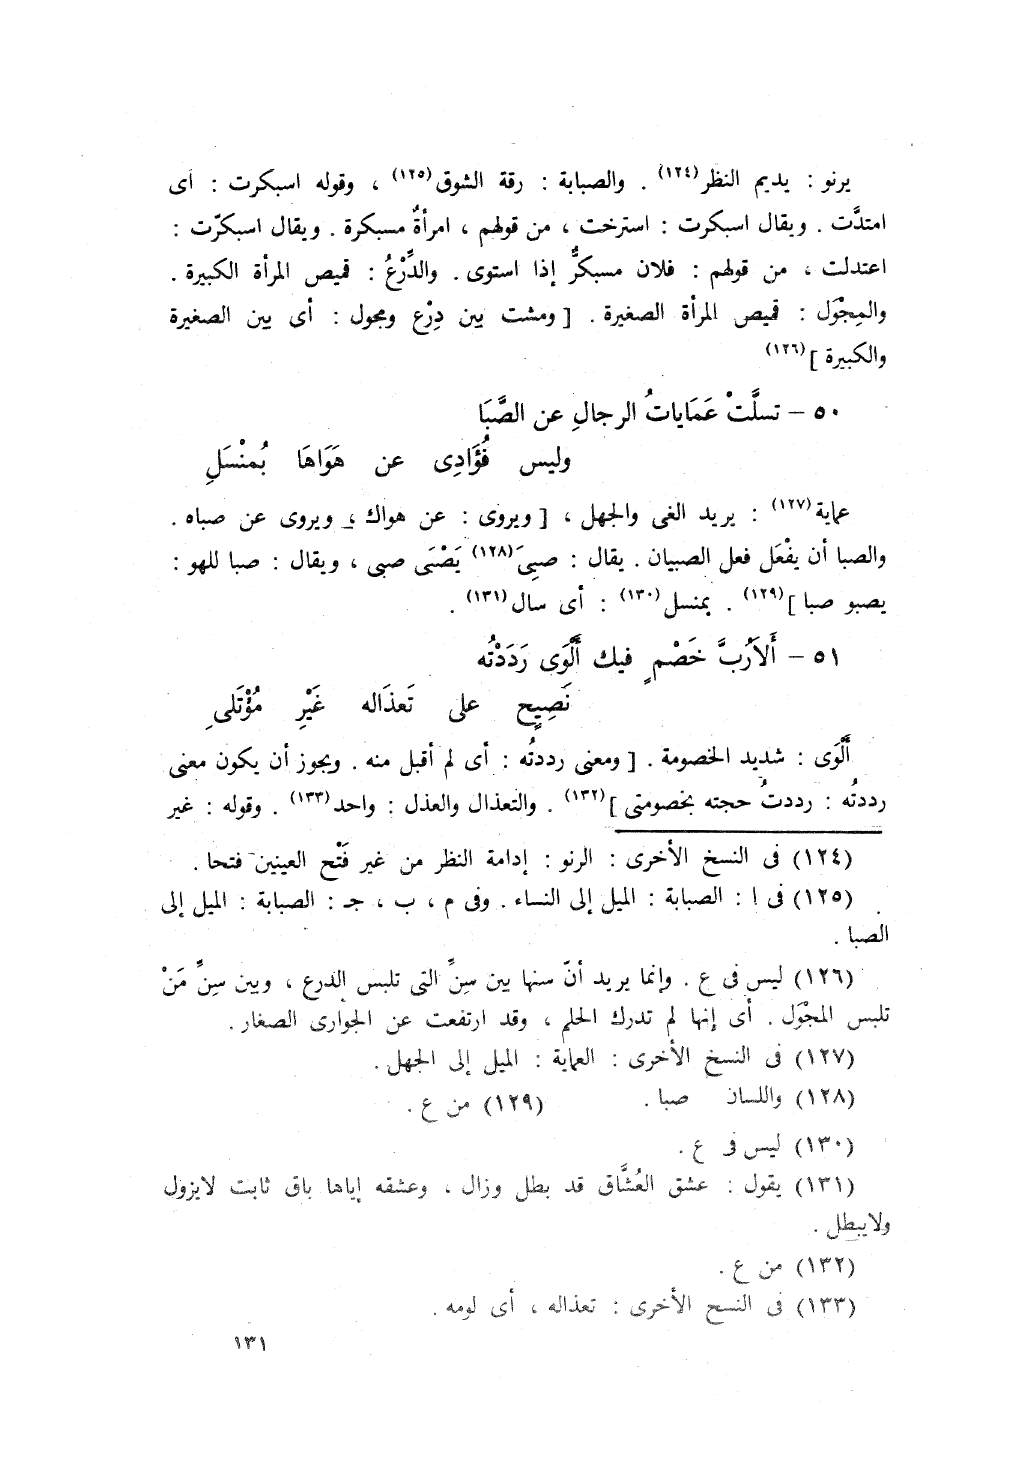 يرنو : يديم النظر(١٢٤) . والصبابة : رقة الشوق(١٢٥) ، وقوله اسبكرت : أى
امتدَّت . ويقال اسبكرت : استرخت ، من قولهم ، امرأةٌ مسبكرة . ويقال اسبكرّت :
اعتدلت ، من قولهم : فلان مسبكرٌّ إذا استوى . والدِّرْعُ : قميص المرأة الكبيرة .
والمِجْوَل : قميص المرأة الصغيرة . [ ومشت بين دِرْع ومجول : أى بين الصغيرة
والكبيرة ](١٢٦)
٥٠ – تسلَّتْ عَمَاياتُ الرجالِ عن الصَّبَا
وليس فُؤَادِى عن هَوَاهَا بُمنْسَلِ
عماية(١٢٧) : يريد الغى والجهل ، [ ويروى : عن هواك ؛ ويروى عن صباه .
والصبا أن يفْعَل فعل الصبيان . يقال : صبِىَ(١٢٨) يَصْبَى صبى ، ويقال : صبا للهو :
يصبو صبا ](١٢٩) . بمنسل(١٣٠) : أى سال(١٣١) .
٥١ – أَلاَرُبَّ خَصْمٍ فيك أَلْوَى رَدَدْتُه
نَصِيحٍ على تَعذَاله غَيْرِ مُؤْتَلىِ
أَلْوَى : شديد الخصومة . [ ومعنى رددتُه : أى لم أقبل منه . ويجوز أن يكون معنى
رددتُه : رددتُ حجته بخصومتى ](١٣٢) . والتعذال والعذل : واحد(١٣٣) . وقوله : غير
(١٢٤) فى النسخ الأخرى : الرنو : إدامة النظر من غير فَتْح العينين فتحا .
(١٢٥) فى ا : الصبابة : الميل إلى النساء . وفى م ، ب ، جـ : الصبابة : الميل إلى
الصبا .
(١٢٦) ليس فى ع . وإنما يريد أنّ سنها بين سِنِّ التى تلبس الدرع ، وبين سِنِّ مَنْ
تلبس المجْوَل . أى إنها لم تدرك الحلم ، وقد ارتفعت عن الجوارى الصغار .
(١٢٧) فى النسخ الأخرى : العماية : الميل إلى الجهل .
(١٢٨) واللسان صبا . (١٢٩) من ع .
(١٣٠) ليس فى ع .
(١٣١) يقول : عشق العُشَّاق قد بطل وزال ، وعشقه إياها باق ثابت لايزول
ولايبطل .
(١٣٢) من ع .
(١٣٣) فى النسخ الأخرى : تعذاله ، أى لومه .
١٣١